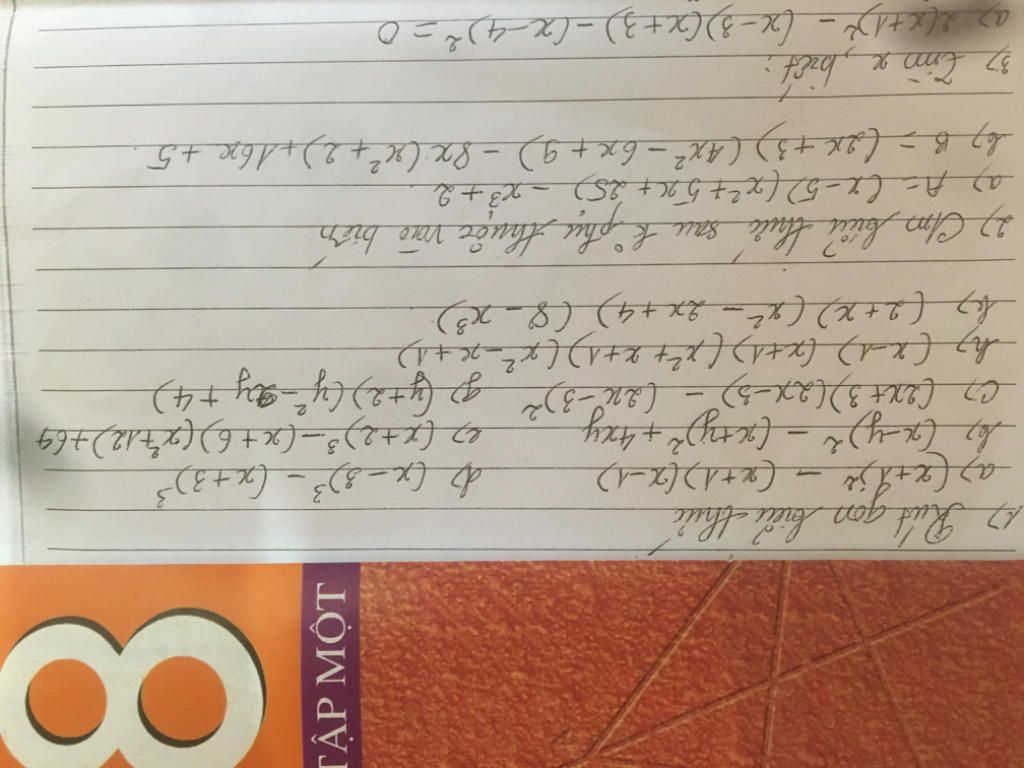 1) Rút gọn biểu thức
a) (x+1)² - (x+1)(x-1) d) (x-3)³ - (x+3)³
b) (x-y)² - (x+y)² + 4xy e) (x+2)³ - (x+6)(x²+12)+64
c) (2x+3)(2x-3) - (2x-3)² g) (y+2)(y²-2y+4)
h) (x-1)(x+1)(x²+x+1)(x²-x+1)
k) (2+x)(x²-2x+4)(8-x³)
2) Cm biểu thức sau k phụ thuộc vào biến
a) A = (x-5)(x²+5x+25) - x³+2
b) B = (2x+3)(4x²-6x+9) - 8x(x²+2)+16x+5
3) Tìm x, biết:
a) 2(x+1)² - (x-3)(x+3) - (x-4)² = 0
TẬP MỘT
8